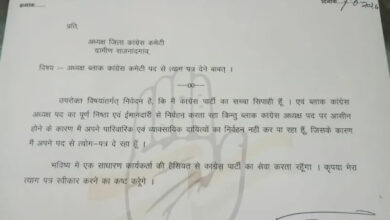 दिनांक
प्रति,
अध्यक्ष जिला कांग्रेस कमेटी
ग्रामीण राजनांदगांव,
विषय :– अध्यक्ष ब्लाक कांग्रेस कमेटी पद से त्याग पत्र देने बाबत् ।
—00—
उपरोक्त विषयांतर्गत निवेदन है, कि मैं कांग्रेस पार्टी का सच्चा सिपाही हूँ । एवं ब्लाक कांग्रेस
अध्यक्ष पद का पूर्ण निष्ठा एवं ईमानदारी से निर्वहन करता रहा किन्तु ब्लाक कांग्रेस अध्यक्ष पद पर आसीन
होने के कारण मैं अपने पारिवारिक एवं व्यावसायिक दायित्वों का निर्वहन नही कर पा रहा हूँ, जिसके कारण
मैं अपने पद से त्याेग-पत्र दे रहा हूँ ।
भविष्य में एक साधारण कार्यकर्ता की हैसियत से कांग्रेस पार्टी का सेवा करता रहूँगा । कृपया मेरा
त्याग पत्र स्वीकार करने का कष्ट करेंगे ।